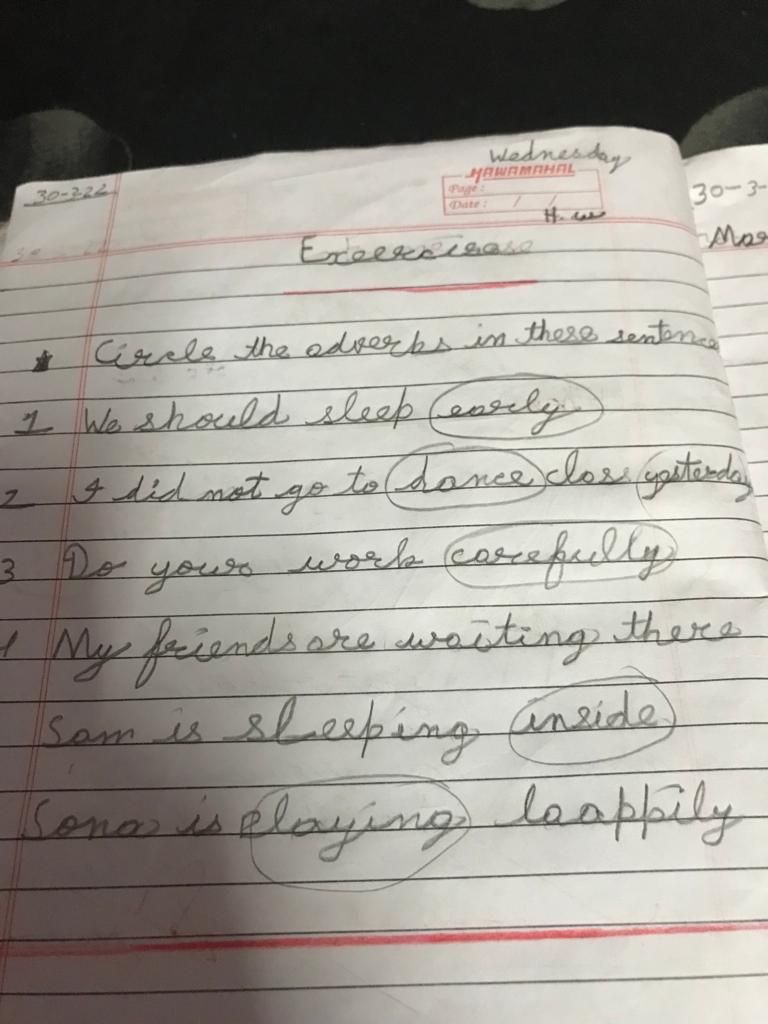 Wednesday
30-3-22
HAWAMAHAL
Page :
Date : / /
H.w
30-3-
Mar
Circle the adverbs in these sentence
1 We should sleep early
2 I did not go to dance class yesterday
3 Do your work carefully
My friends are waiting there
Sam is sleeping inside
Sona is playing haappily